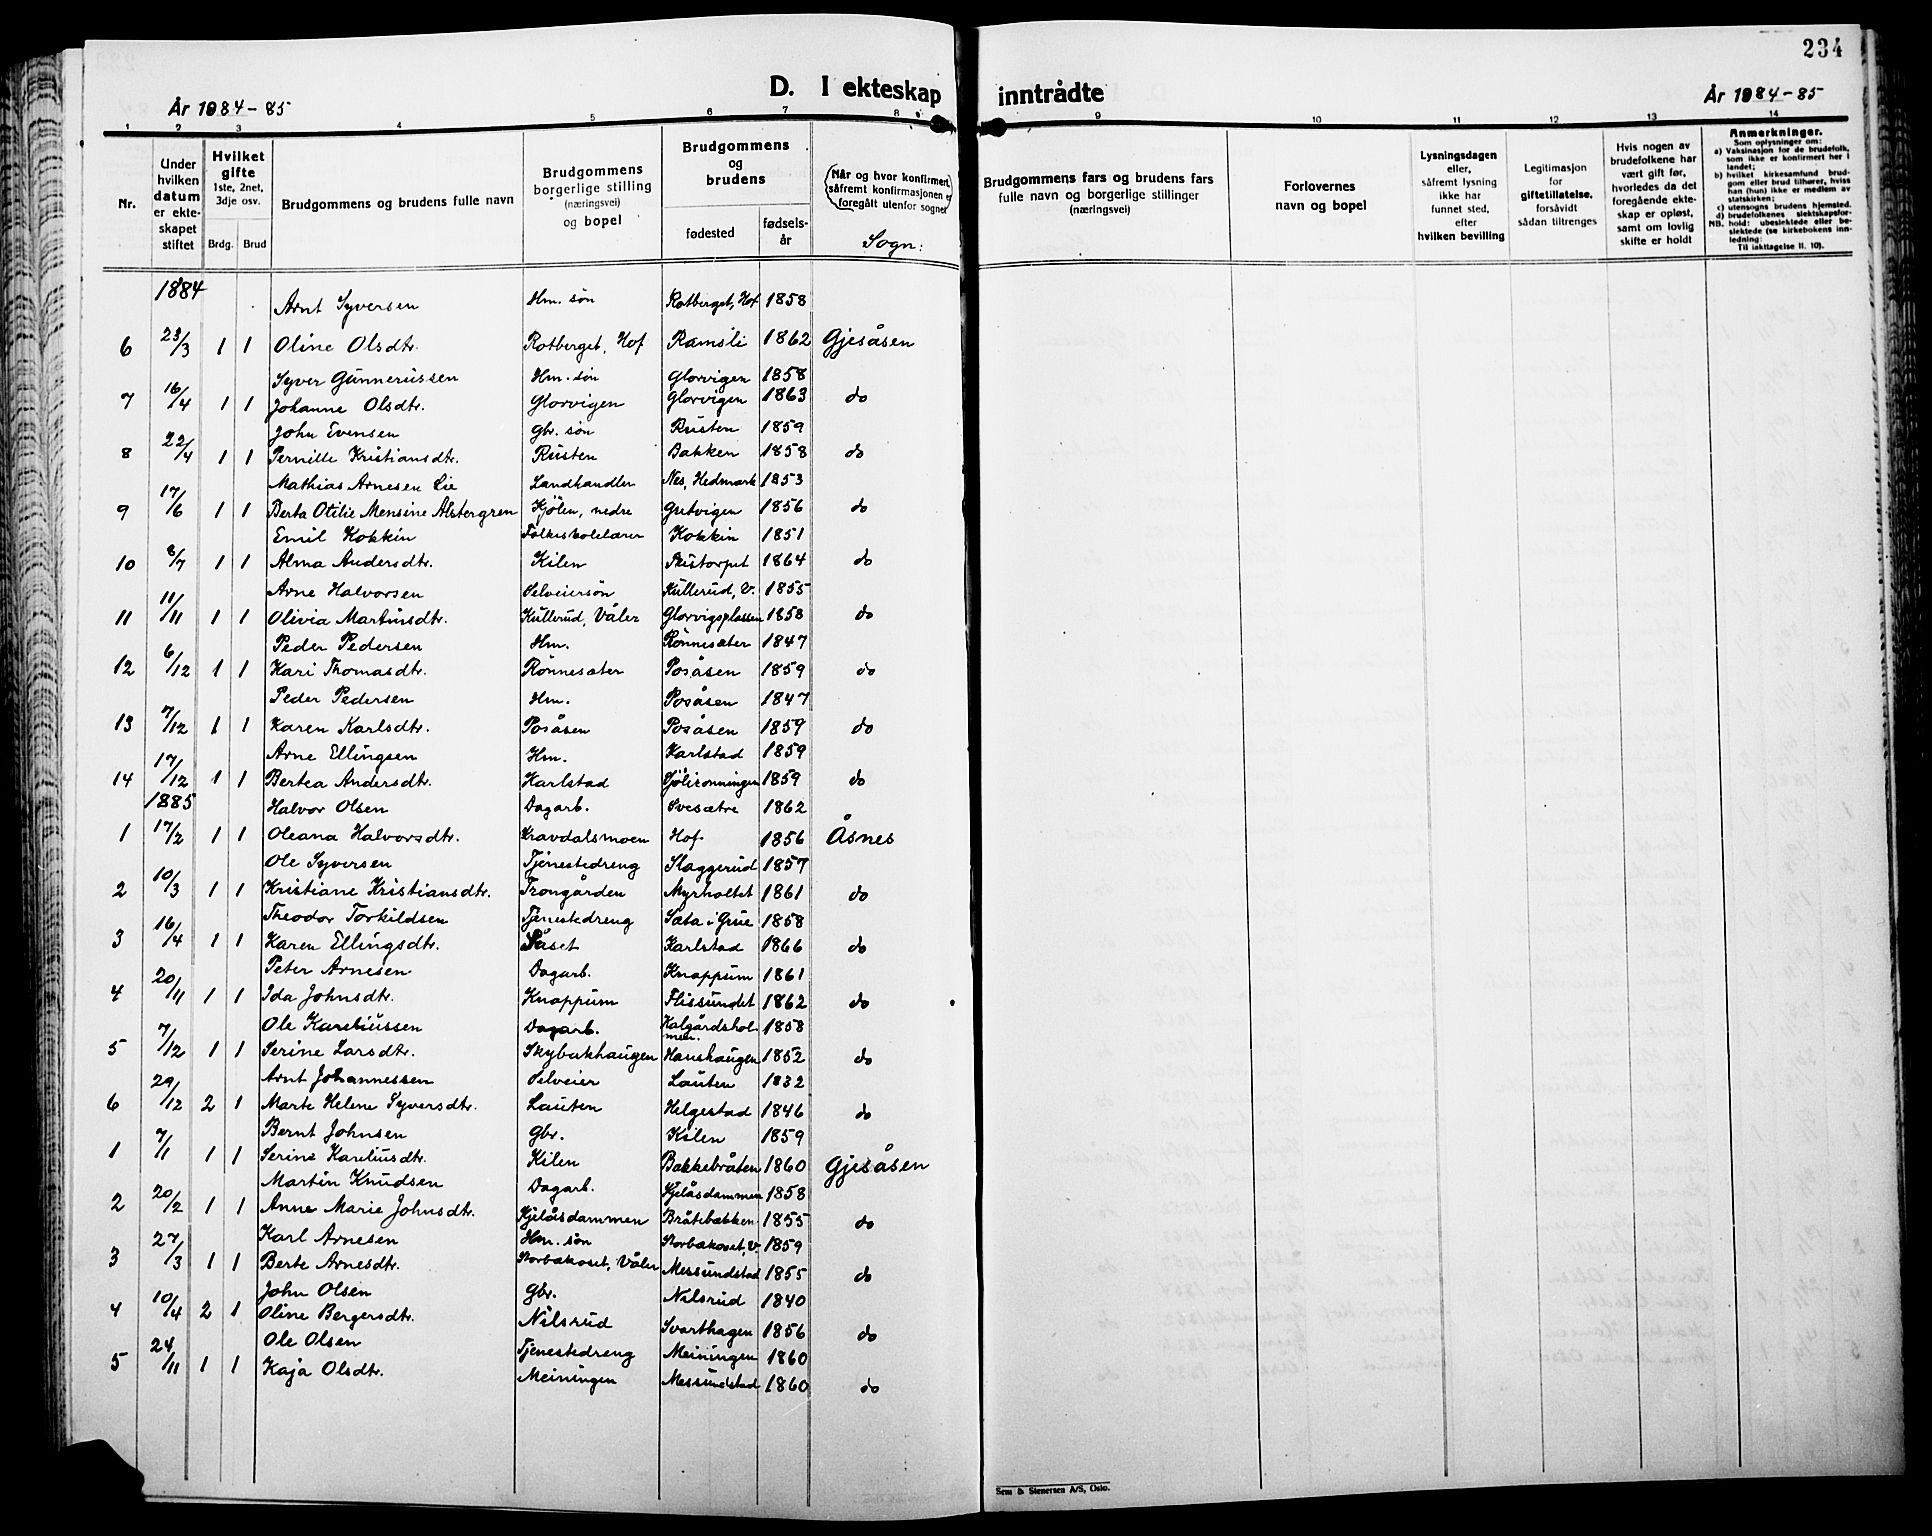 234
D. I ekteskap inntrådte
År 1884-85
År 1884-85
1 2 3 4 5 6 7 8 9 10 11 12 13 14
Nr.
Under hvilken datum er ekteskapet stiftet
Hvilket gifte 1ste, 2net, 3dje osv.
Brdg. Brud
Brudgommens og brudens fulle navn
Brudgommens borgerlige stilling (næringsvei) og bopel
Brudgommens og brudens
fødested
fødselsår
(Når og hvor konfirmert, såfremt konfirmasjonen er foregått utenfor sognet)
Sogn:
Brudgommens fars og brudens fars fulle navn og borgerlige stillinger (næringsvei)
Forlovernes navn og bopel
Lysningsdagen eller, såfremt lysning ikke har funnet sted, efter hvilken bevilling
Legitimasjon for giftetillatelse, forsåvidt sådan tiltrenges
Hvis nogen av brudefolkene har vært gift før, hvorledes da det foregående ekteskap er opløst, samt om lovlig skifte er holdt
Anmerkninger.
Som oplysninger om:
a) Vaksinasjon for de brudefolk, som ikke er konfirmert her i landet;
b) hvilket kirkesamfund brudgom eller brud tilhører, hviss han (hun) ikke er medlem av statskirken;
c) utensogns brudens hjemsted.
d) brudefolkenes slektskapsforhold: ubeslektede eller beslektede (se kirkebokens innledning:
NB. Til iakttagelse II. 10).
1884
Arnt Syversen Hm. søn Rotberget, Hof 1858
6 23/3 1 1 Oline Olsdtr. Rotberget, Hof Ramsli 1862 Gjesåsen
Syver Gunnerussen Hm. søn Glorvigen 1858
7 16/4 1 1 Johanne Olsdtr. Glorvigen Glorvigen 1863 do
John Evensen Gbr. søn Rusten 1859
8 22/4 1 1 Pernille Kristiansdtr. Rusten Bakken 1858 do
Mathias Arnesen Lie Landhandler Nes, Hedmark 1853
9 17/6 1 1 Berta Otilie Mensine Alstergren Kjölen, nedre Gretvigen 1856 do
Emil Kokkin Folkeskolelærer Kokkin 1851
10 8/7 1 1 Alma Andersdtr. Kilen Skistorpet 1864 do
Arne Halvorsen Selveiersön Kullerud, V. 1855
11 11/11 1 1 Olivia Martinsdtr. Kullerud, Våler Glorvigsplassen 1858 do
Peder Pedersen Hm. Rönnesæter 1847
12 6/12 1 1 Kari Thomasdtr. Rönnesæter Posåsen 1859 do
Peder Pedersen Hm. Posåsen 1847
13 7/12 1 1 Karen Karlsdtr. Posåsen Posåsen 1859 do
Arne Ellingsen Hm. Karlstad 1859
14 17/12 1 1 Bertea Andersdtr. Karlstad Sjölironningen 1859 do
1885
Halvor Olsen Dagarb. Svesætre 1862
1 17/2 1 1 Oleana Halvorsdtr. Kravdalsmoen Hof 1856 Åsnes
Ole Syversen Tjenestedreng Slaggerud 1857
2 10/3 1 1 Kristiane Kristiansdtr. Trongården Myrholtet 1861 do
Theodor Torkildsen Tjenestedreng Sæta i Grue 1858
3 16/4 1 1 Karen Ellingsdtr. Såset Karlstad 1866 do
Peter Arnesen Dagarb. Knappum 1861
4 20/11 1 1 Ida Johnsdtr. Knappum Flissundet 1862 do
Ole Kareliussen Dagarb. Kalgårdsholmen. 1858
5 7/12 1 1 Serine Larsdtr. Skybakhaugen Hanshaugen 1852 do
Arnt Johannessen Selveier Lauten 1832
6 29/12 2 1 Marte Helene Syversdtr. Lauten Helgestad 1846 do
Bernt Johnsen Gbr. Kilen 1859
1 7/1 1 1 Serine Kareliusdtr. Kilen Bakkebråten 1860 Gjesåsen
Martin Knudsen Dagarb. Kjelåsdammen 1858
2 20/2 1 1 Anne Marie Johnsdtr. Kjelåsdammen Bråtebækken 1855 do
Karl Arnesen Hm. søn Storbækoset, V. 1859
3 27/3 1 1 Berte Arnesdtr. Storbækoset, Våler Messundstad 1855 do
John Olsen Gbr. Nilsrud 1840
4 10/4 2 1 Oline Bergersdtr. Nilsrud Svarthagen 1856 do
Ole Olsen Tjenestedreng Meiningen 1860
5 24/11 1 1 Kaja Olsdtr. Meiningen Messundstad 1860 do
Sem & Stenersen A/S, Oslo.